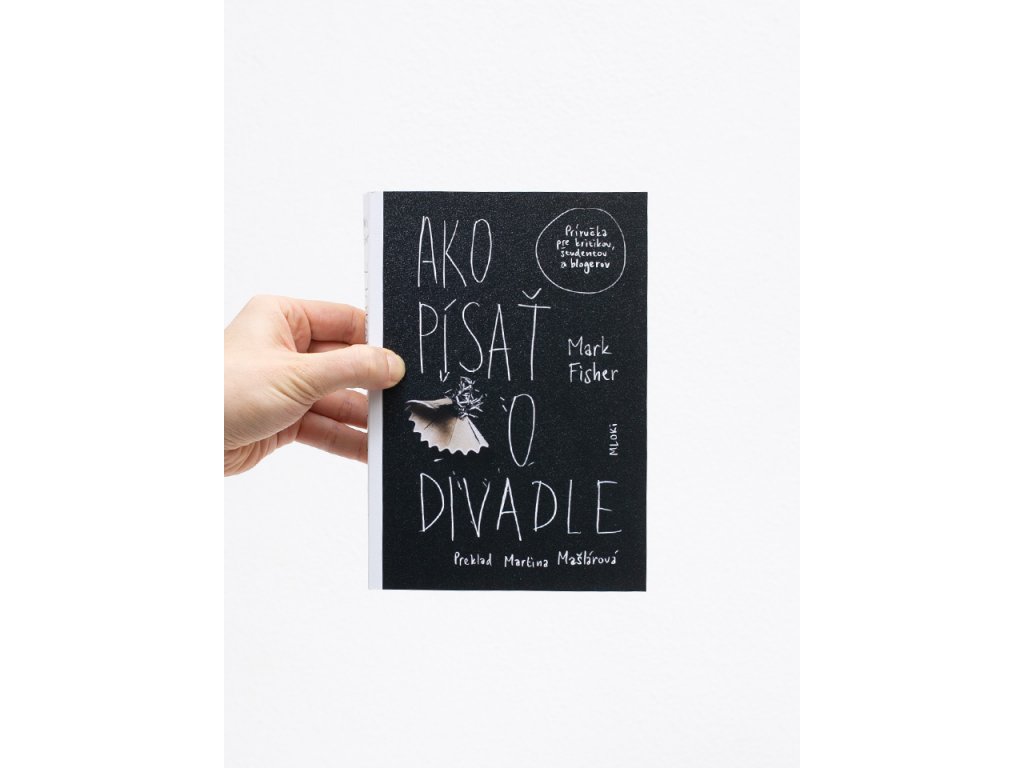 AKO
PÍSAŤ
O
DIVADLE
Príručka
pre kritikov,
študentov
a blogerov
Mark
Fisher
MLOKi
Preklad Martina Mašlárová